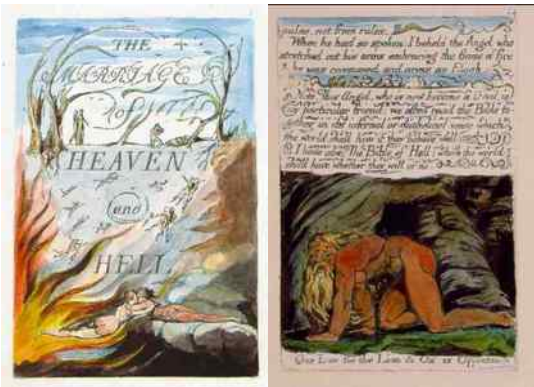 THE
MARRIAGE
of
HEAVEN
and
HELL
pulse, not from rules.
When he had so spoken: I beheld the Angel who
stretched out his arms embracing the flame of fire
& he was consumed and arose as Elijah.
Note. This Angel, who is now become a Devil, is
my particular friend: we often read the Bible to-
gether in its infernal or diabolical sense which
the world shall have if they behave well
I have also: The Bible of Hell: which the world
shall have whether they will or no.
One Law for the Lion & Ox is Oppression